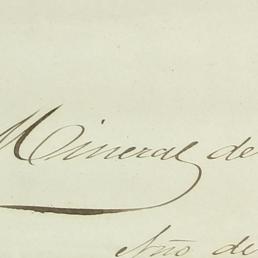 Mineral de
Año de